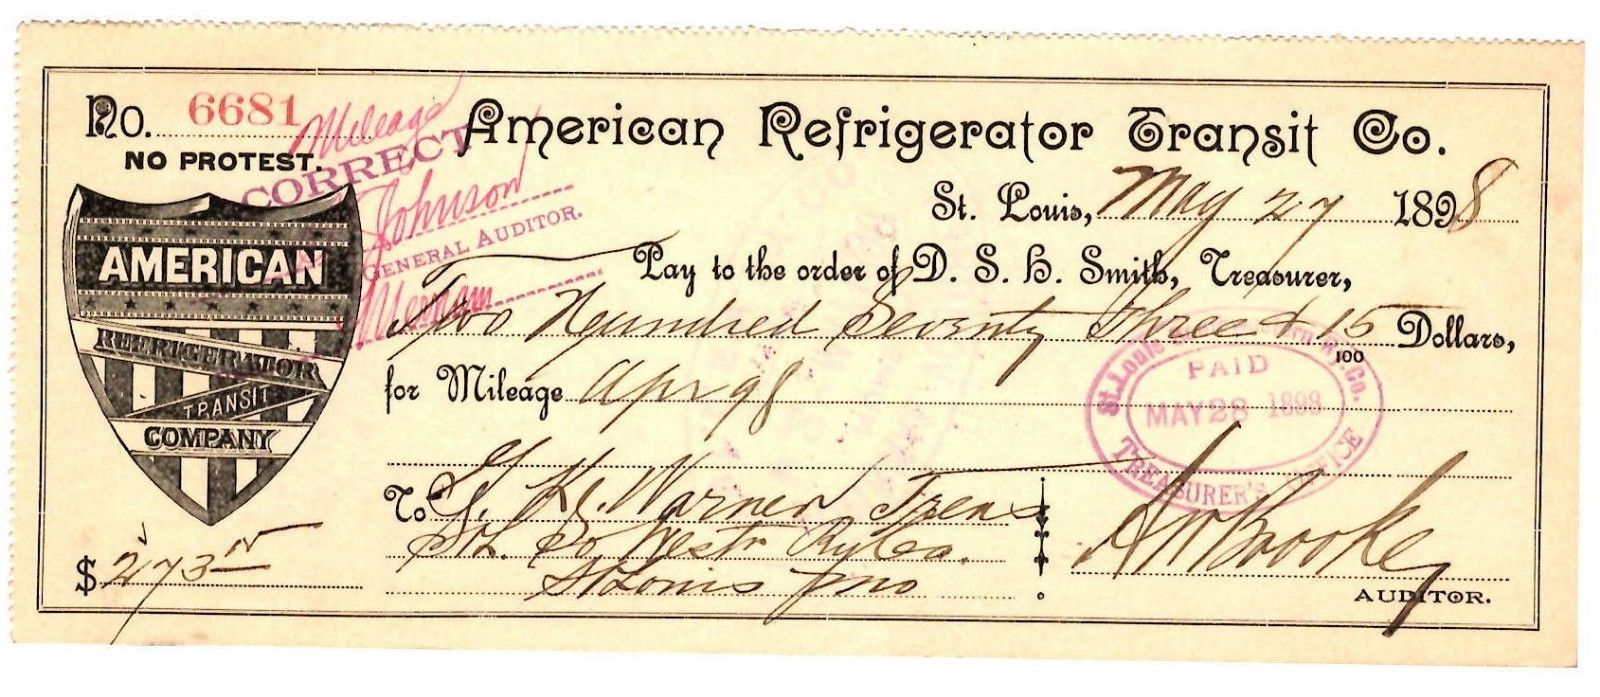 No. 6681
NO PROTEST.
Mileage
CORRECT
Johnson
GENERAL AUDITOR.
Merriam
American Refrigerator Transit Co.
St. Louis, May 27 1898
Pay to the order of D. S. H. Smith, Treasurer,
Two Hundred Seventy Three & 15/100 Dollars,
for Mileage Apr 98
AMERICAN
REFRIGERATOR
TRANSIT
COMPANY
St. Louis Co.
PAID
MAY 28 1898
TREASURER'S OFFICE
To G. K. Warner Treas
St. So. Westn Ry Co.
St Louis Mo
$ 273 15
Brooke
AUDITOR.